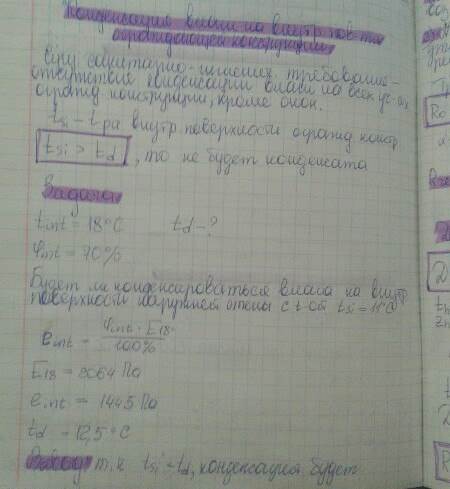 Конденсация влаги на внутр. пов-ти
ограждающей конструкции
санитарно-гигиенич. требование -
отсутствие конденсации влаги на всех
огражд. конструкции, кроме окон.
tsi - t-ра внутр. поверхности огражд. констр
tsi > td, то не будет конденсата
Задача
tint = 18°C td - ?
φint = 70%
Будет ли конденсироваться влага на внутр
поверхности наружней стены с t-ой tsi = 11°C
eint = φint · E18 / 100%
E18 = 2064 Па
eint = 1445 Па
td = 12,5°C
Вывод: т.к tsi < td, конденсация будет
Ro
D
R